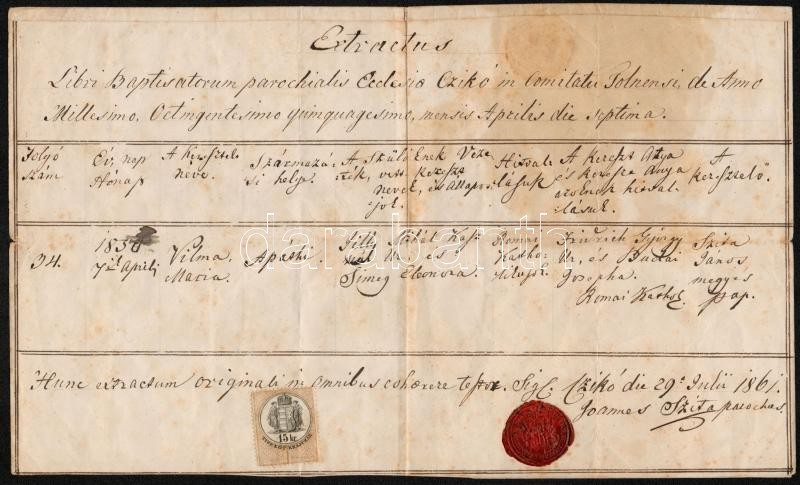 Extractus
Libri Baptisatorum parochialis Ecclesiæ Czikó in Comitatu Tolnensi, de Anno
Millesimo, Octingentesimo quinquagesimo, mensis Aprilis die septima.
Folyó szám
Év, nap Hónap
A Keresztelt neve.
Származási helye.
A Szülőknek Vezeték, vess Kereszt nevek, és állapotjok.
Hivallásuk
A Kereszt Atya és Kereszt Anya azoknak hivallásuk.
A Keresztelő.
34.
1850 7ik Aprili
Vilma Maria.
Apáthi.
és Simeg Eleonora.
Római Katho-
Fridrich György Ur, és Budai Josepha.
Romai Kathol.
Szita János megyés pap.
Hunc extractum originali in omnibus cohærere testor. Sigl. Czikó die 29a Julii 1861.
Joannes Szita parochus.
15 kr.
darabanth.com